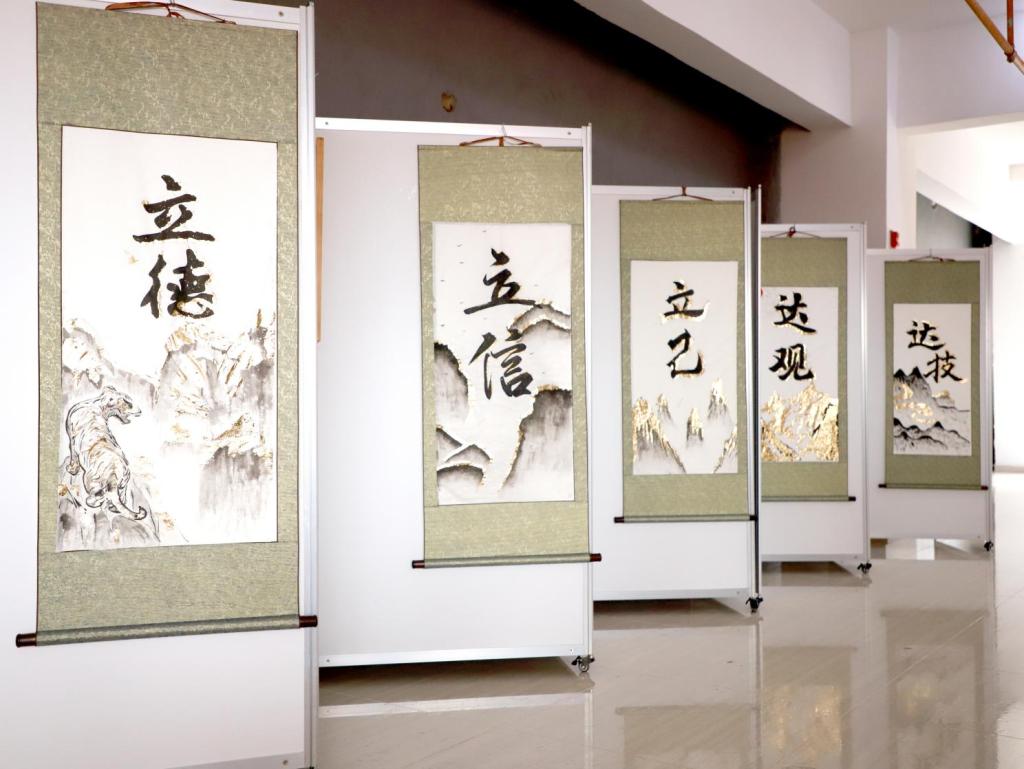 立
德
立
信
立
己
达
观
达
技